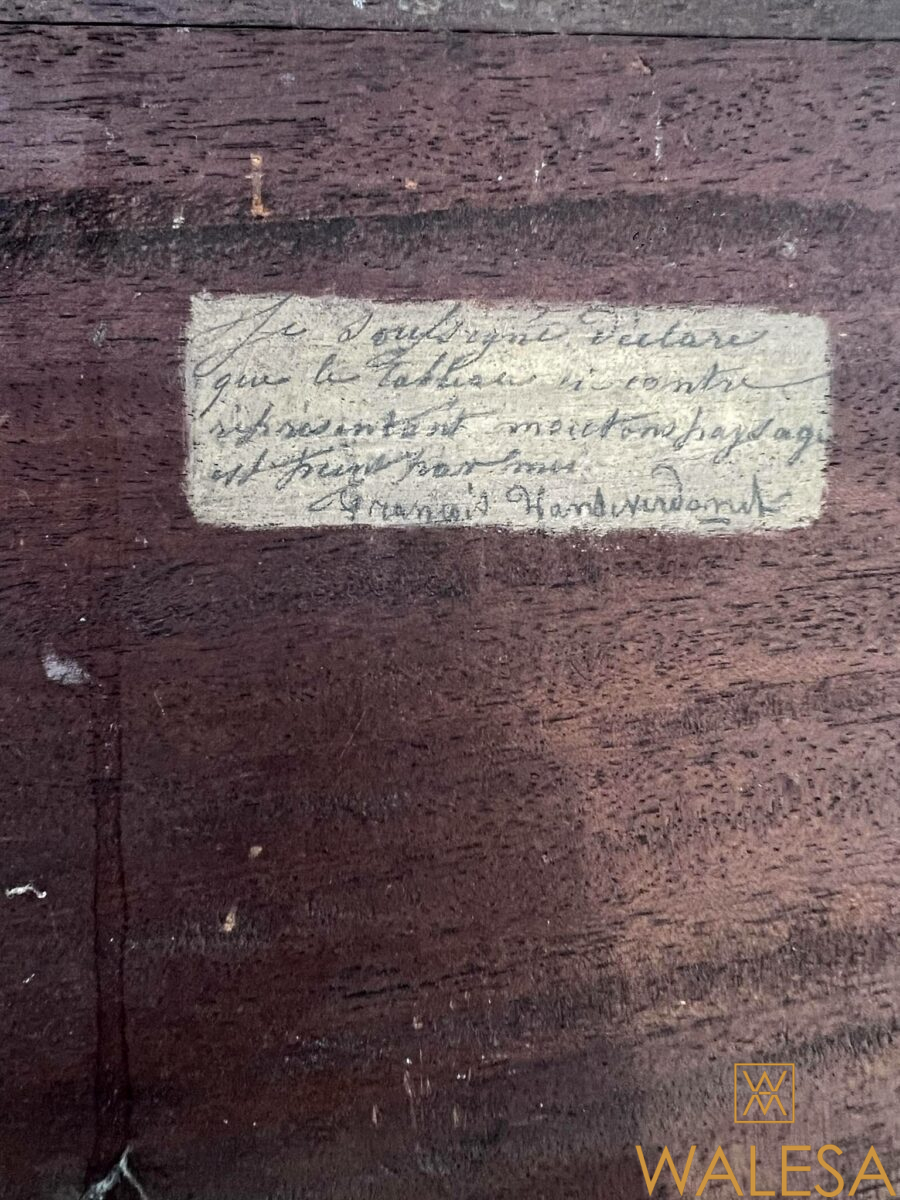 Je Soussigné, déclare
que le Tableau ci contre
représentant moutons paysage
est peint par moi
François Vandeverdonck
WALESA